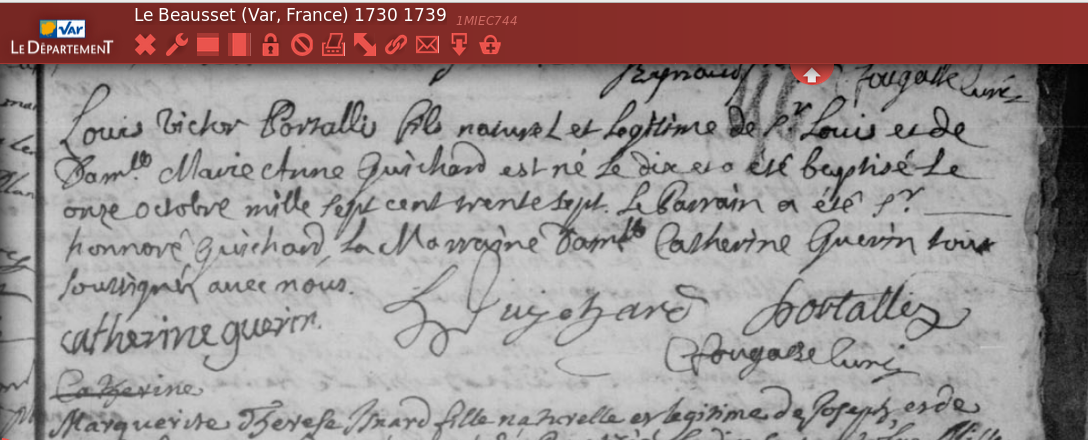 Le Beausset (Var, France) 1730 1739 1MIEC744
Var
LE DÉPARTEMENT
Reynaud fougasse curé
Louis Victor Portallis fils naturel et legitime de sr Louis et de
Damlle Marie Anne Guichard est né le dix et a eté baptisé le
onze octobre mille sept cent trente sept. Le Parrain a été sr
honnoré guichard, La Marraine Damlle Catherine Guerin tous
soussignés avec nous.
catherine guerin. H Guichard portallis
fougasse curé
Catherine
Marguerite Therese Isnard fille naturelle et legitime de Joseph, et de